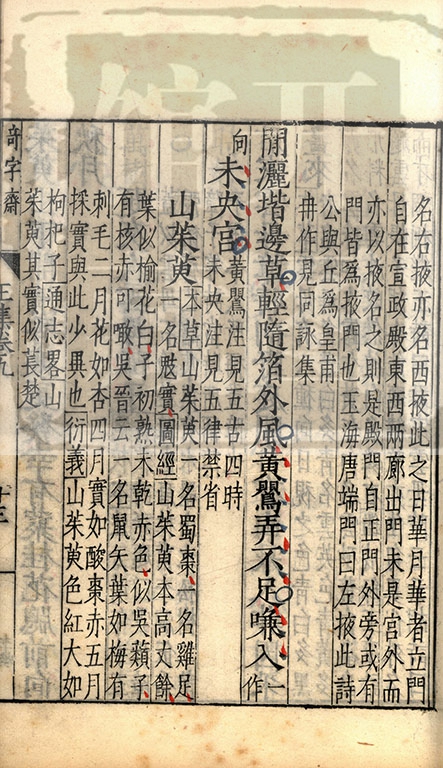 名右掖亦名西掖此之日華月華者立門
自在宣政殿東西兩廊出門未是宮外而
亦以掖名之則是殿門自正門外旁或有
門皆爲掖門也玉海唐端門曰左掖此詩
公與丘爲皇甫
冉作見同詠集
閒灑堦邊草輕隨箔外風黃鸎弄不足嗛入一作
向未央宮黃鸎注見五古四時
未央注見五律禁省
山茱萸本草山茱萸一名蜀棗一名雞足
一名鬾實圖經山茱萸本高丈餘
葉似榆花白子初熟未乾赤色似吳蘱子
有核亦可噉吳晉云一名鼠矢葉如梅有
刺毛二月花如杏四月實如酸棗赤五月
採實與此少異也衍義山茱萸色紅大如
枸杞子通志畧山
茱萸其實似萇楚
奇字齋
王集卷五
十三